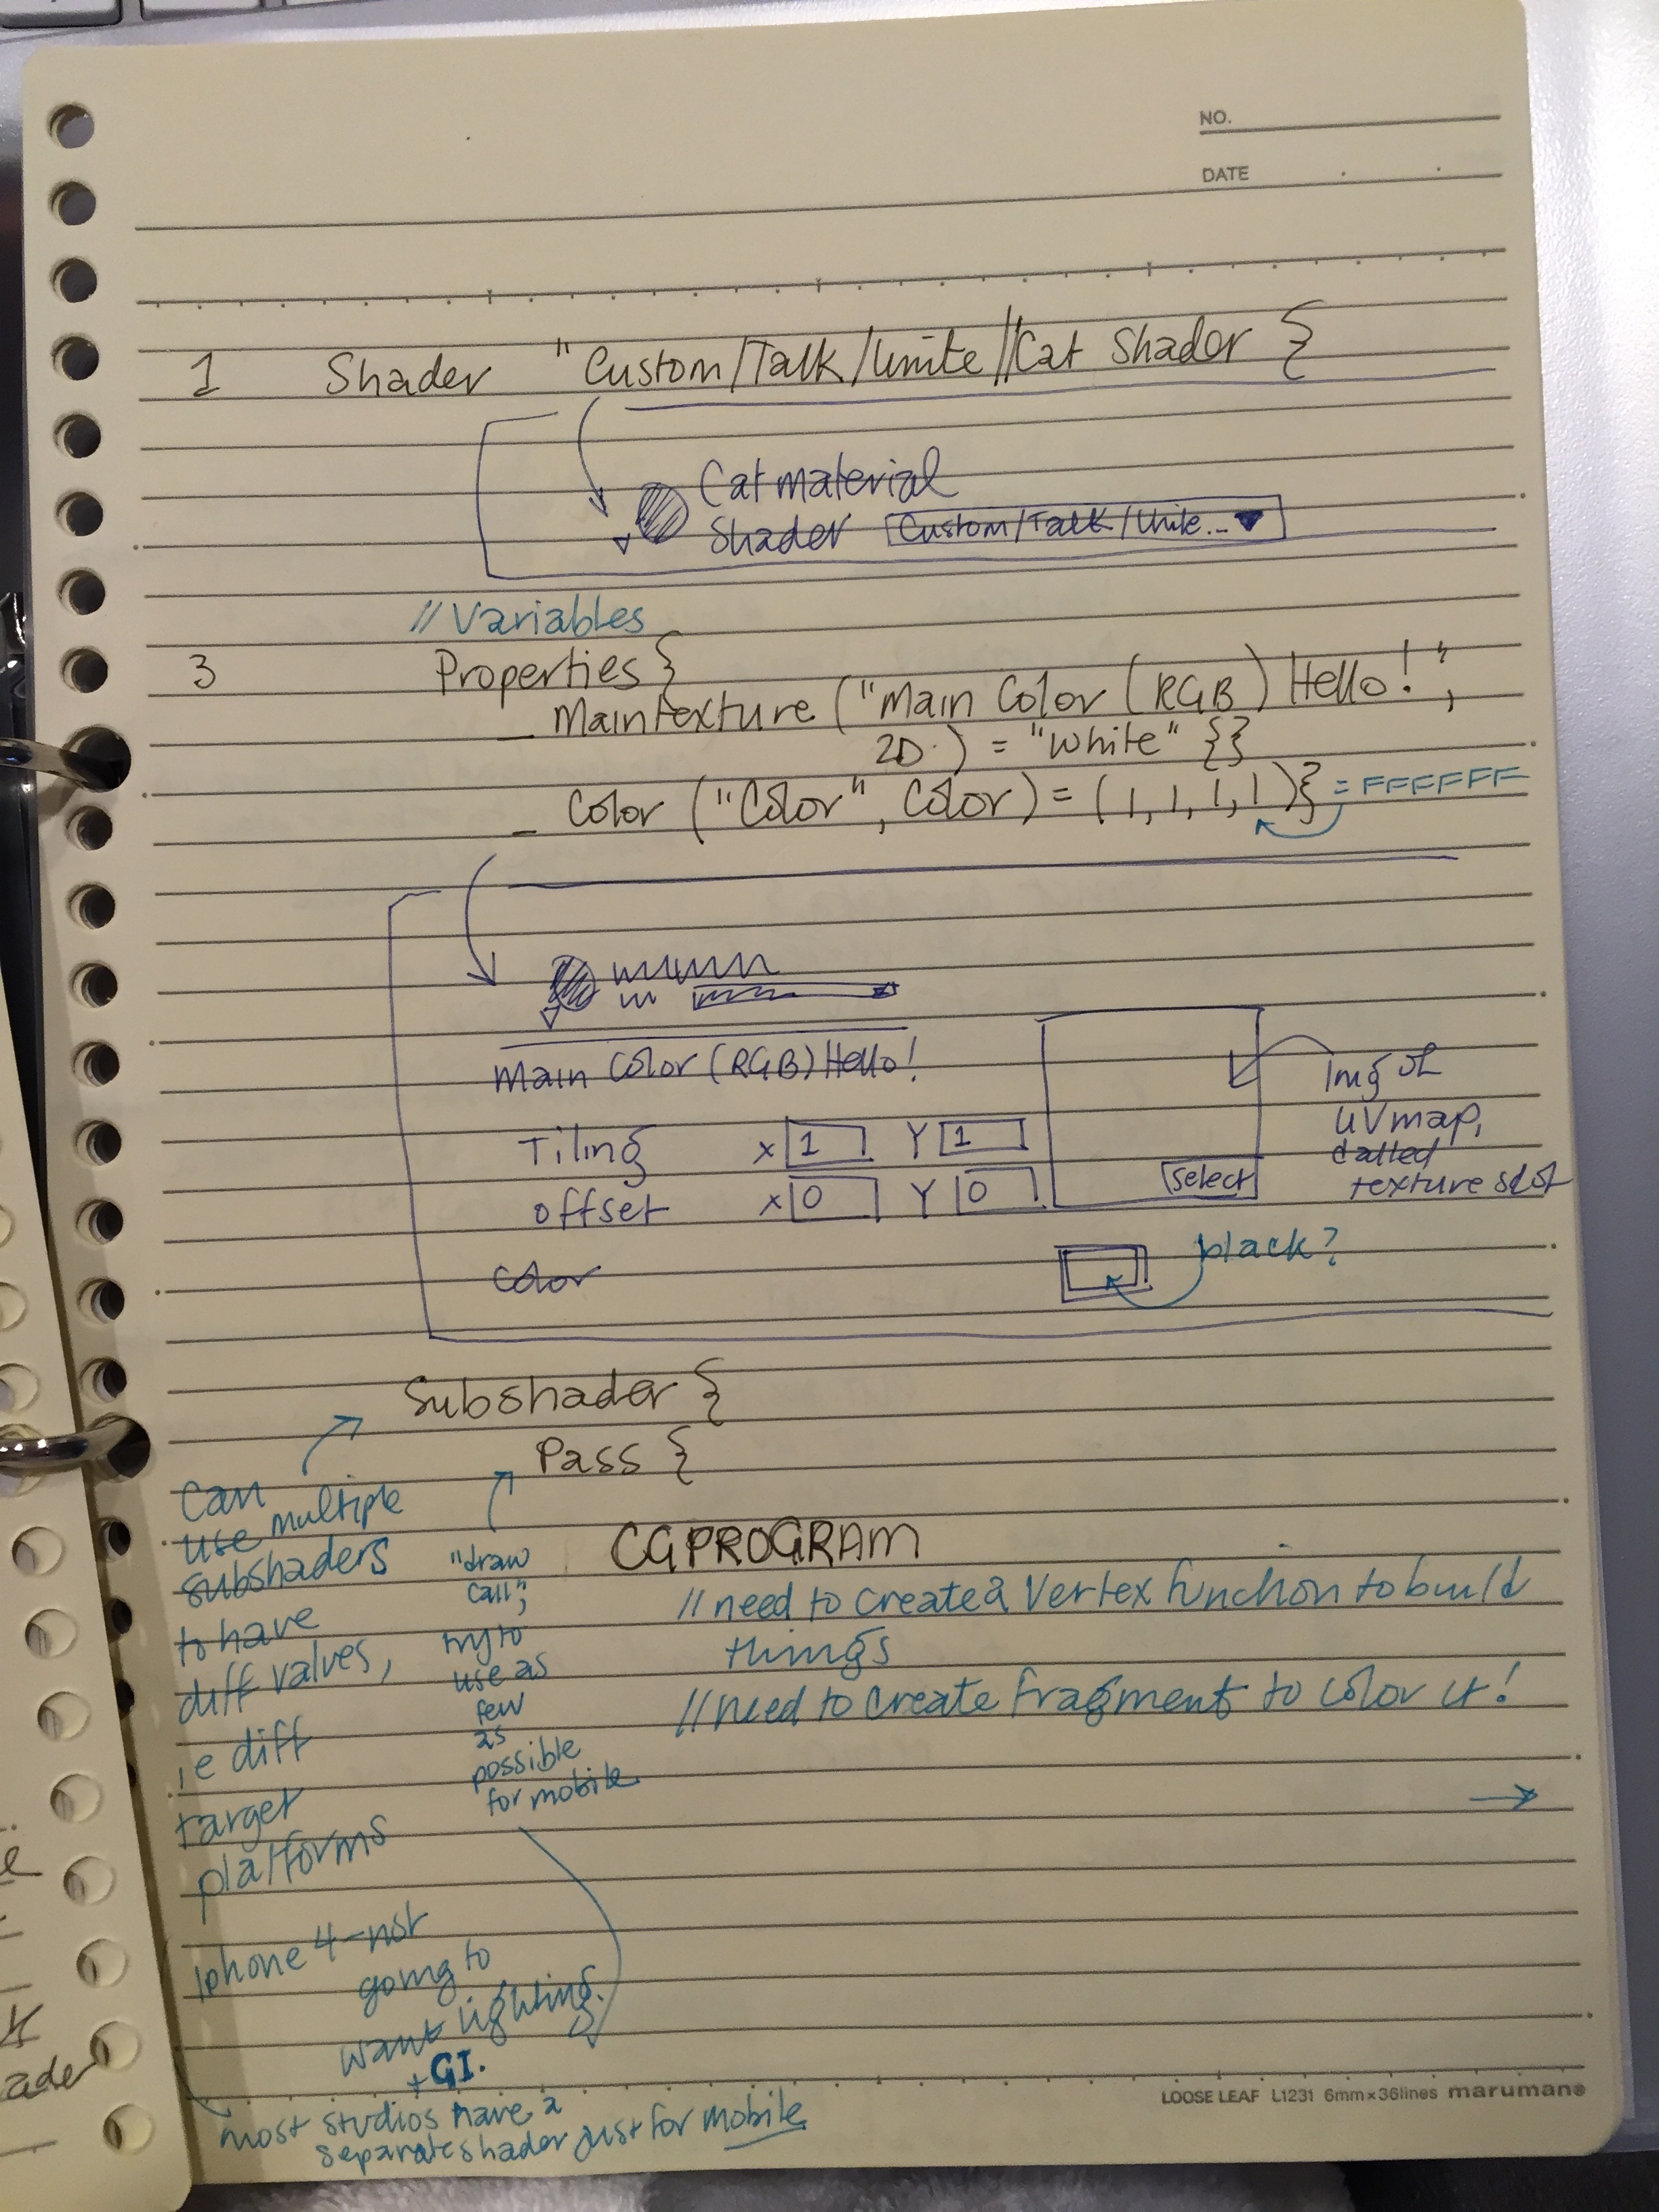 NO.
DATE
1 Shader "Custom/Talk/Unite//Cat Shader {
Cat material
Shader Custom/Talk/Unite...
//Variables
3 Properties {
_Maintexture ("Main Color (RGB) Hello!",
2D) = "White" {}
_Color ("Color", Color) = (1,1,1,1)} = FFFFFF
Main Color (RGB) Hello!
Tiling X 1 Y 1
offset X 0 Y 0
Select
Img of
UVmap,
called
texture slot
Color
black?
Subshader {
Pass {
Can
use multiple
subshaders
to have
diff values,
ie diff
target
platforms
Iphone 4-not
going to
want lighting.
+GI.
"draw
call",
try to
use as
few
as
possible
for mobile
CGPROGRAM
//need to create a Vertex function to build
things
//need to create Fragment to color it!
most studios have a
separate shader just for mobile
LOOSE LEAF L1231 6mm×36lines maruman
ader